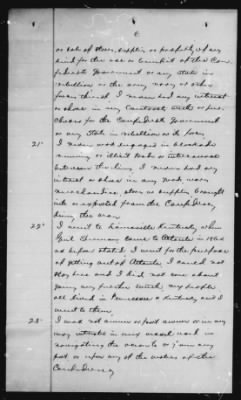 6
or sale of stores, supplies or property of any
kind for the use or benefit of the Con-
federate Government or any state in
rebellion or the army navy or other
forces thereof. I never had any interest
or share in any contracts with or pur-
chases for the Confederate Government
or any State in rebellion or its forces
21" I never was engaged in blockade
running or illicit trade or intercourse
between the lines I never had any
interest or share in any goods wares
merchandise, stores or supplies brought
into or exported from the Confederacy
during the war.
22" I went to Louisville Kentucky when
Genl Sherman came to Atlanta in 1864
as before stated I went for the purpose
of getting out of Atlanta I could not
stay here and I did not care about
going any further south, my people
all lived in Tennessee & Kentucky and I
went to them
23" I was not owner or part owner or in any
way interested in any vessel used in
navigating the
port in upon any of the waters of the
Confederacy